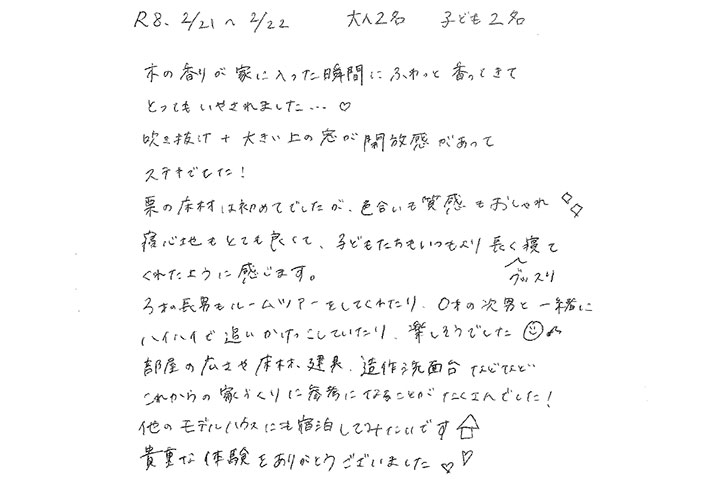 R8. 2/21〜2/22 大人2名 子ども2名
木の香りが家に入った瞬間にふわっと香ってきて
とってもいやされました…♡
吹き抜け+大きい上の窓が開放感があって
ステキでした!
栗の床材は初めてでしたが、色合いも質感もおしゃれ
寝心地もとても良くて、子どもたちもいつもより長く寝て
くれたように感じます。 グッスリ
3才の長男もルームツアーをしてくれたり、0才の次男と一緒に
ハイハイで追いかけっこしていたり、楽しそうでした
部屋の広さや床材、建具、造作洗面台などなど
これからの家づくりに参考になることがたくさんでした!
他のモデルハウスにも宿泊してみたいです
貴重な体験をありがとうございました♡♡